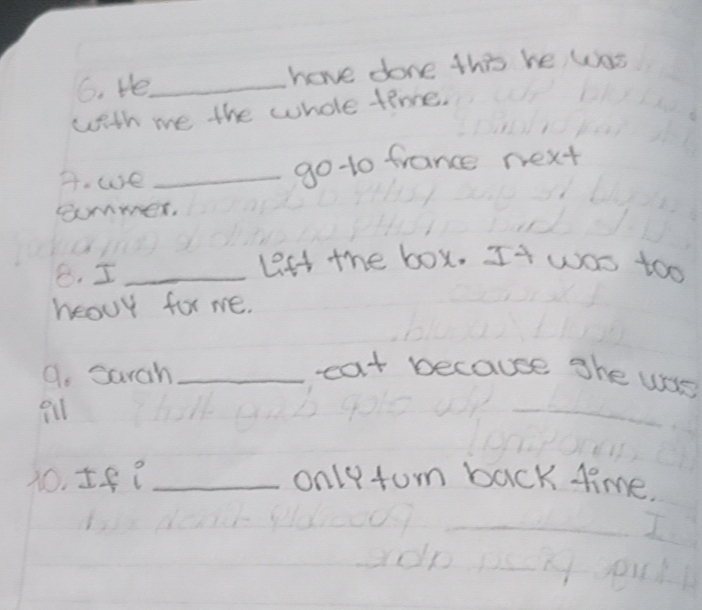 6. He ________ have done this he was
with me the whole time.
7. we ________ go to france next
summer.
8. I ________ lift the box. It was too
heavy for me.
9. Sarah ________ eat because she was
ill
10. If i ________ only turn back time.